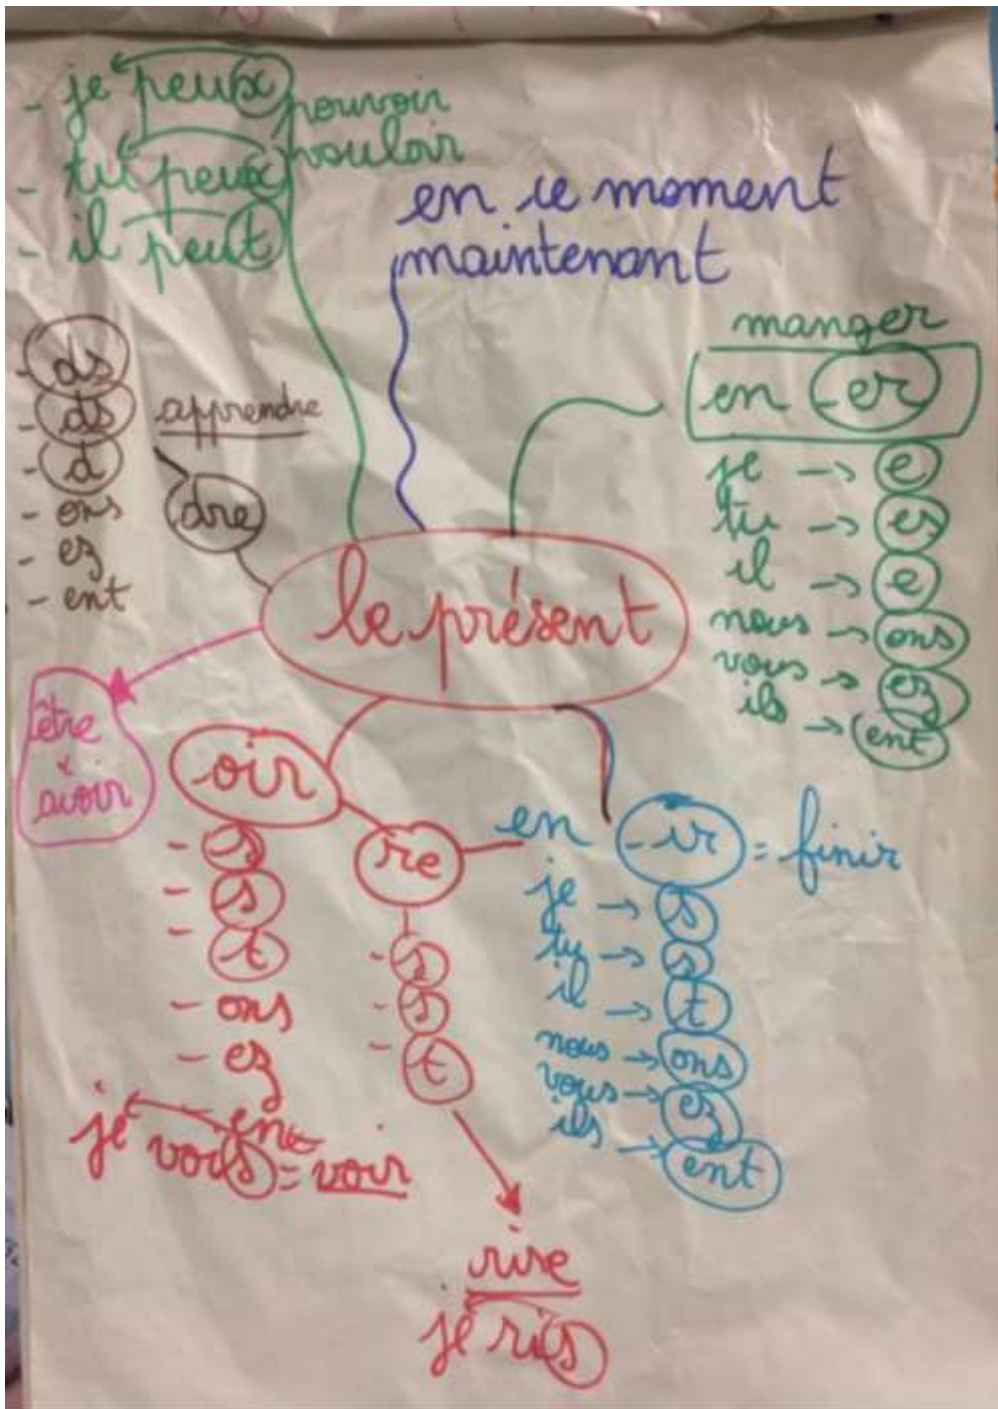 - je peux
pouvoir
- tu peux
vouloir
- il peut
en ce moment
maintenant
manger
en -er
je → e
tu → es
il → e
nous → ons
vous → ez
ils → ent
- ds
- ds
- d
- ons
- ez
- ent
apprendre
dre
le présent
être
&
avoir
oir
- s
- s
- t
- ons
- ez
ent
je vois = voir
re
- s
- s
- t
rire
je ris
en -ir = finir
je → s
tu → s
il → t
nous → ons
vous → ez
ils → ent